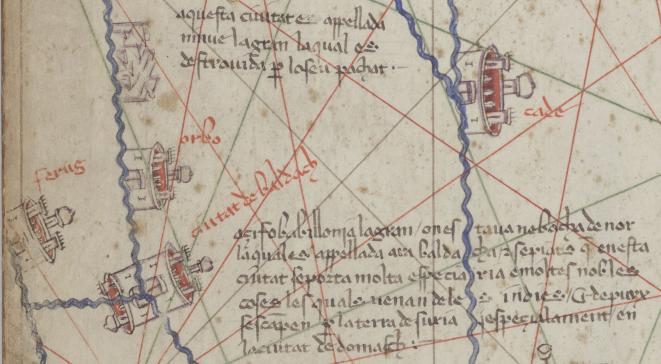 aquesta ciutat es appellada
niniue la gran la qual es
destrouida p lo seu pachat
orbo
cade
ferus
ciutat de baldach
aci fo babillonia la gran on es taua nabochadenor
la qual es appellada ara balda ch
ciutat se porta molta especia ria e moltes nobles
coses les quals uenen de le s indies
p la terra de suria e specialament en
la ciutat de domasch